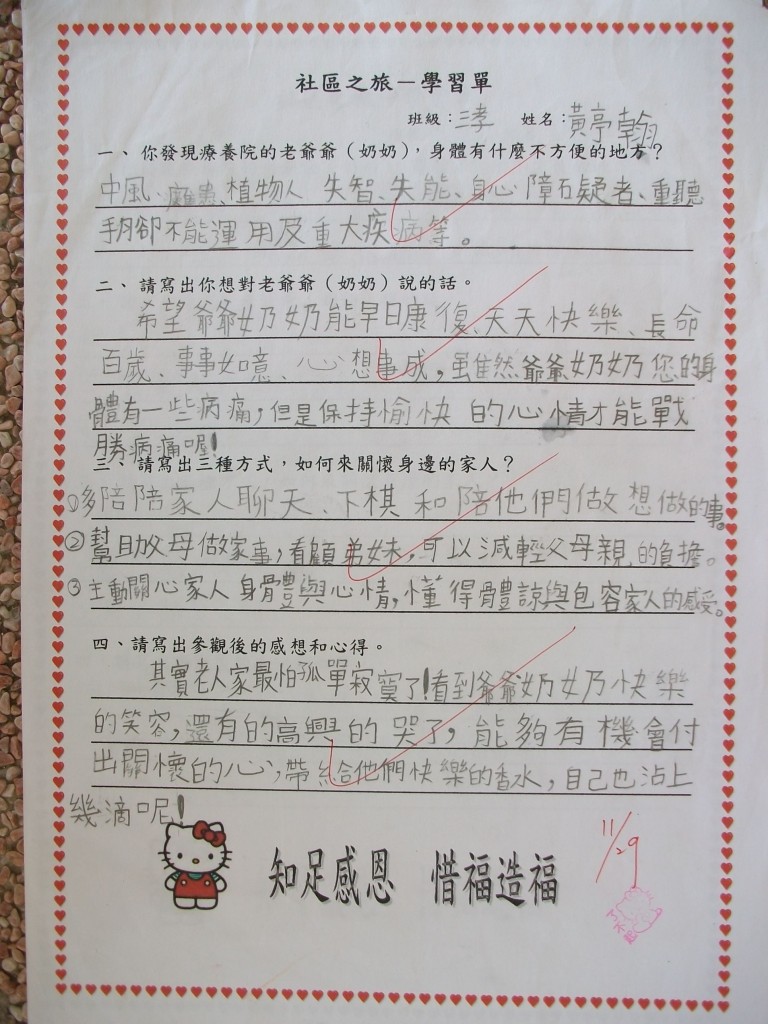 社區之旅－學習單
班級：三孝 姓名：黃亭翰
一、你發現療養院的老爺爺（奶奶），身體有什麼不方便的地方？
中風、癱患、植物人 失智、失能、身心障礙者、重聽
手腳不能運用及重大疾病等。
二、請寫出你想對老爺爺（奶奶）說的話。
希望爺爺奶奶能早日康復、天天快樂、長命
百歲、事事如意、心想事成，雖然爺爺奶奶您的身
體有一些病痛，但是保持愉快的心情才能戰
勝病痛喔！
三、請寫出三種方式，如何來關懷身邊的家人？
①多陪陪家人聊天、下棋和陪他們做想做的事。
②幫助父母做家事，看顧弟妹，可以減輕父母親的負擔。
③主動關心家人身體與心情，懂得體諒與包容家人的感受。
四、請寫出參觀後的感想和心得。
其實老人家最怕孤單寂寞了！看到爺爺奶奶快樂
的笑容，還有的高興的哭了，能夠有機會付
出關懷的心，帶給他們快樂的香水，自己也沾上
幾滴呢！
知足感恩 惜福造福
11/29